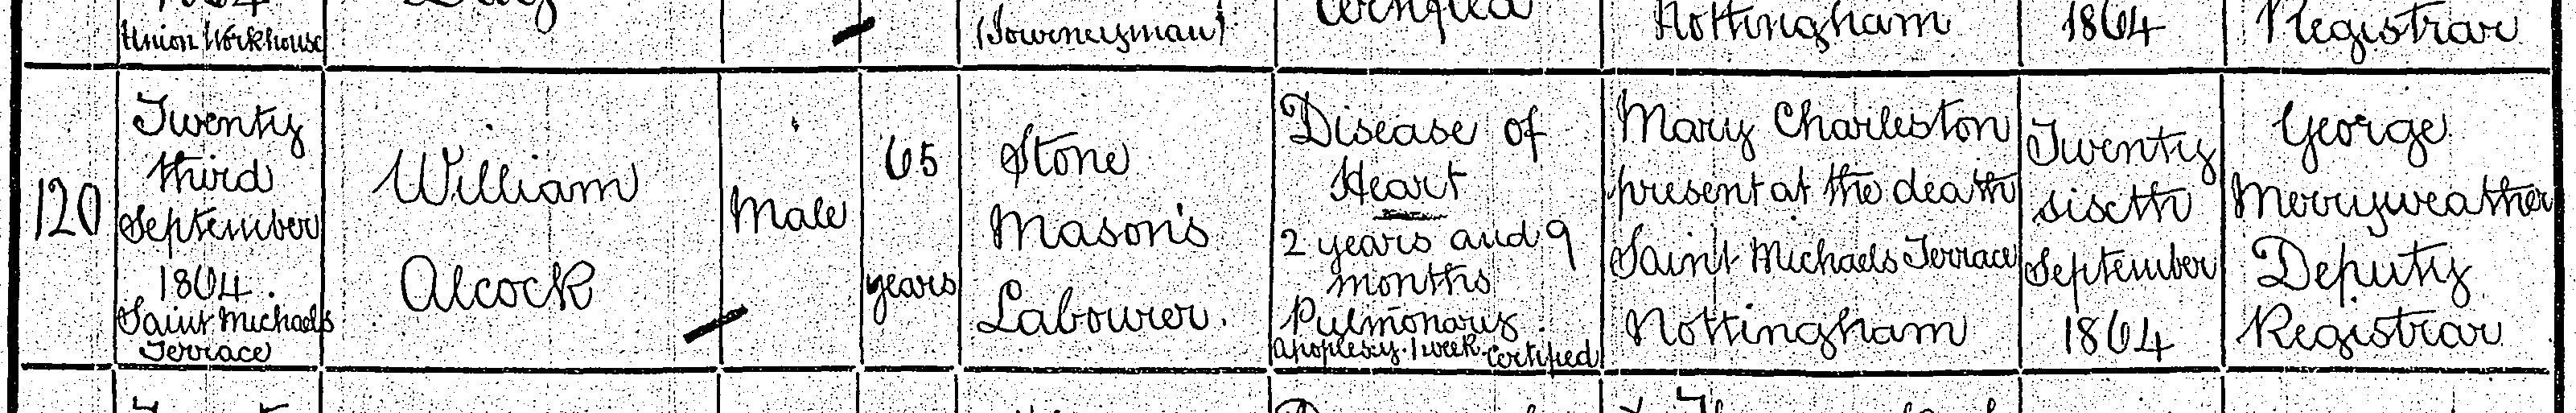 Union Workhouse
(Journeyman)
Certified
Nottingham
1864
Registrar
120
Twenty
third
September
1864.
Saint Michaels
Terrace
William
Alcock
Male
65
years
Stone
Mason's
Labourer.
Disease of
Heart
2 years and 9
months
Pulmonary
Apoplexy. 1 week. Certified
Mary Charleston
present at the death
Saint Michaels Terrace
Nottingham
Twenty
sixth
September
1864
George
Merryweather
Deputy
Registrar